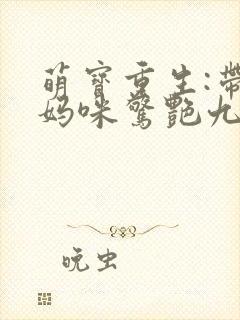 萌寶重生:帶
媽咪驚艷九
晚虫